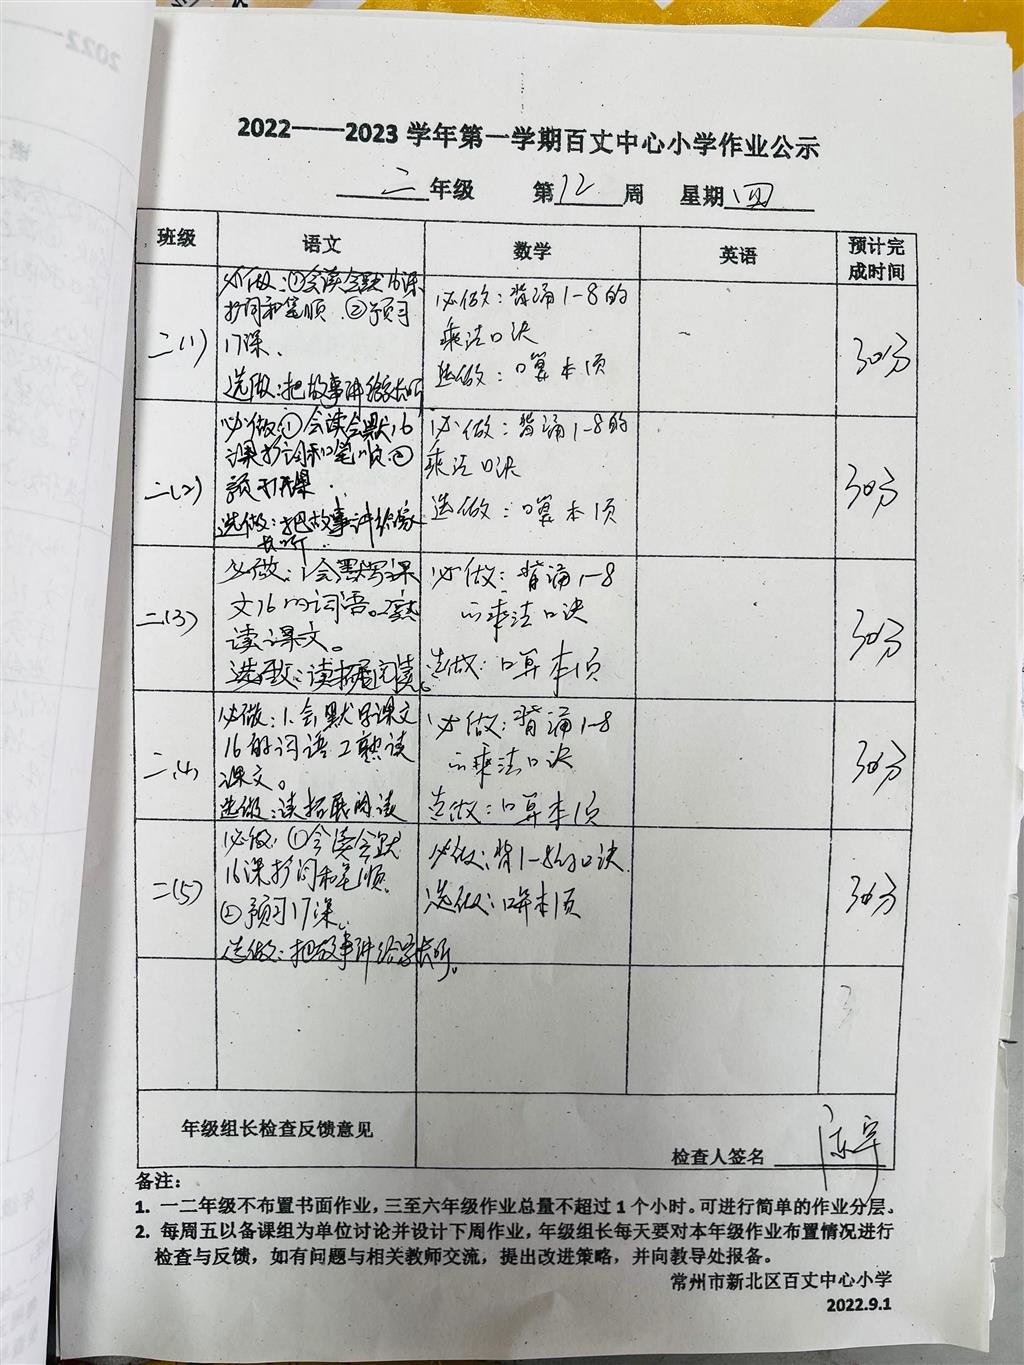 2022——2023 学年第一学期百丈中心小学作业公示
二 年级 第 12 周 星期 四
班级 语文 数学 英语 预计完成时间
二(1)
必做:①会读会默16课
抄词和笔顺 ②预习
17课.
选做:把故事讲给家长听
必做:背诵1-8的
乘法口诀
选做:口算本1页
30分
二(2)
必做①会读会默16
课抄词和笔顺②
预习17课.
选做:把故事讲给家
长听.
必做:背诵1-8的
乘法口诀
选做:口算本1页
30分
二(3)
必做:1.会默写课
文16的词语。2.熟
读课文。
选做:读拓展阅读。
必做:背诵1-8
的乘法口诀
选做:口算本1页
30分
二(4)
必做:1.会默写课文
16的词语 2熟读
课文。
选做:读拓展阅读
必做:背诵1-8
的乘法口诀
选做:口算本1页
30分
二(5)
必做:①会读会默
16课抄词和笔顺.
②预习17课。
选做:把故事讲给家长听。
必做:背1-8的口诀.
选做:口算本1页
30分
年级组长检查反馈意见
检查人签名
备注:
1. 一二年级不布置书面作业,三至六年级作业总量不超过 1 个小时。可进行简单的作业分层。
2. 每周五以备课组为单位讨论并设计下周作业,年级组长每天要对本年级作业布置情况进行
检查与反馈,如有问题与相关教师交流,提出改进策略,并向教导处报备。
常州市新北区百丈中心小学
2022.9.1